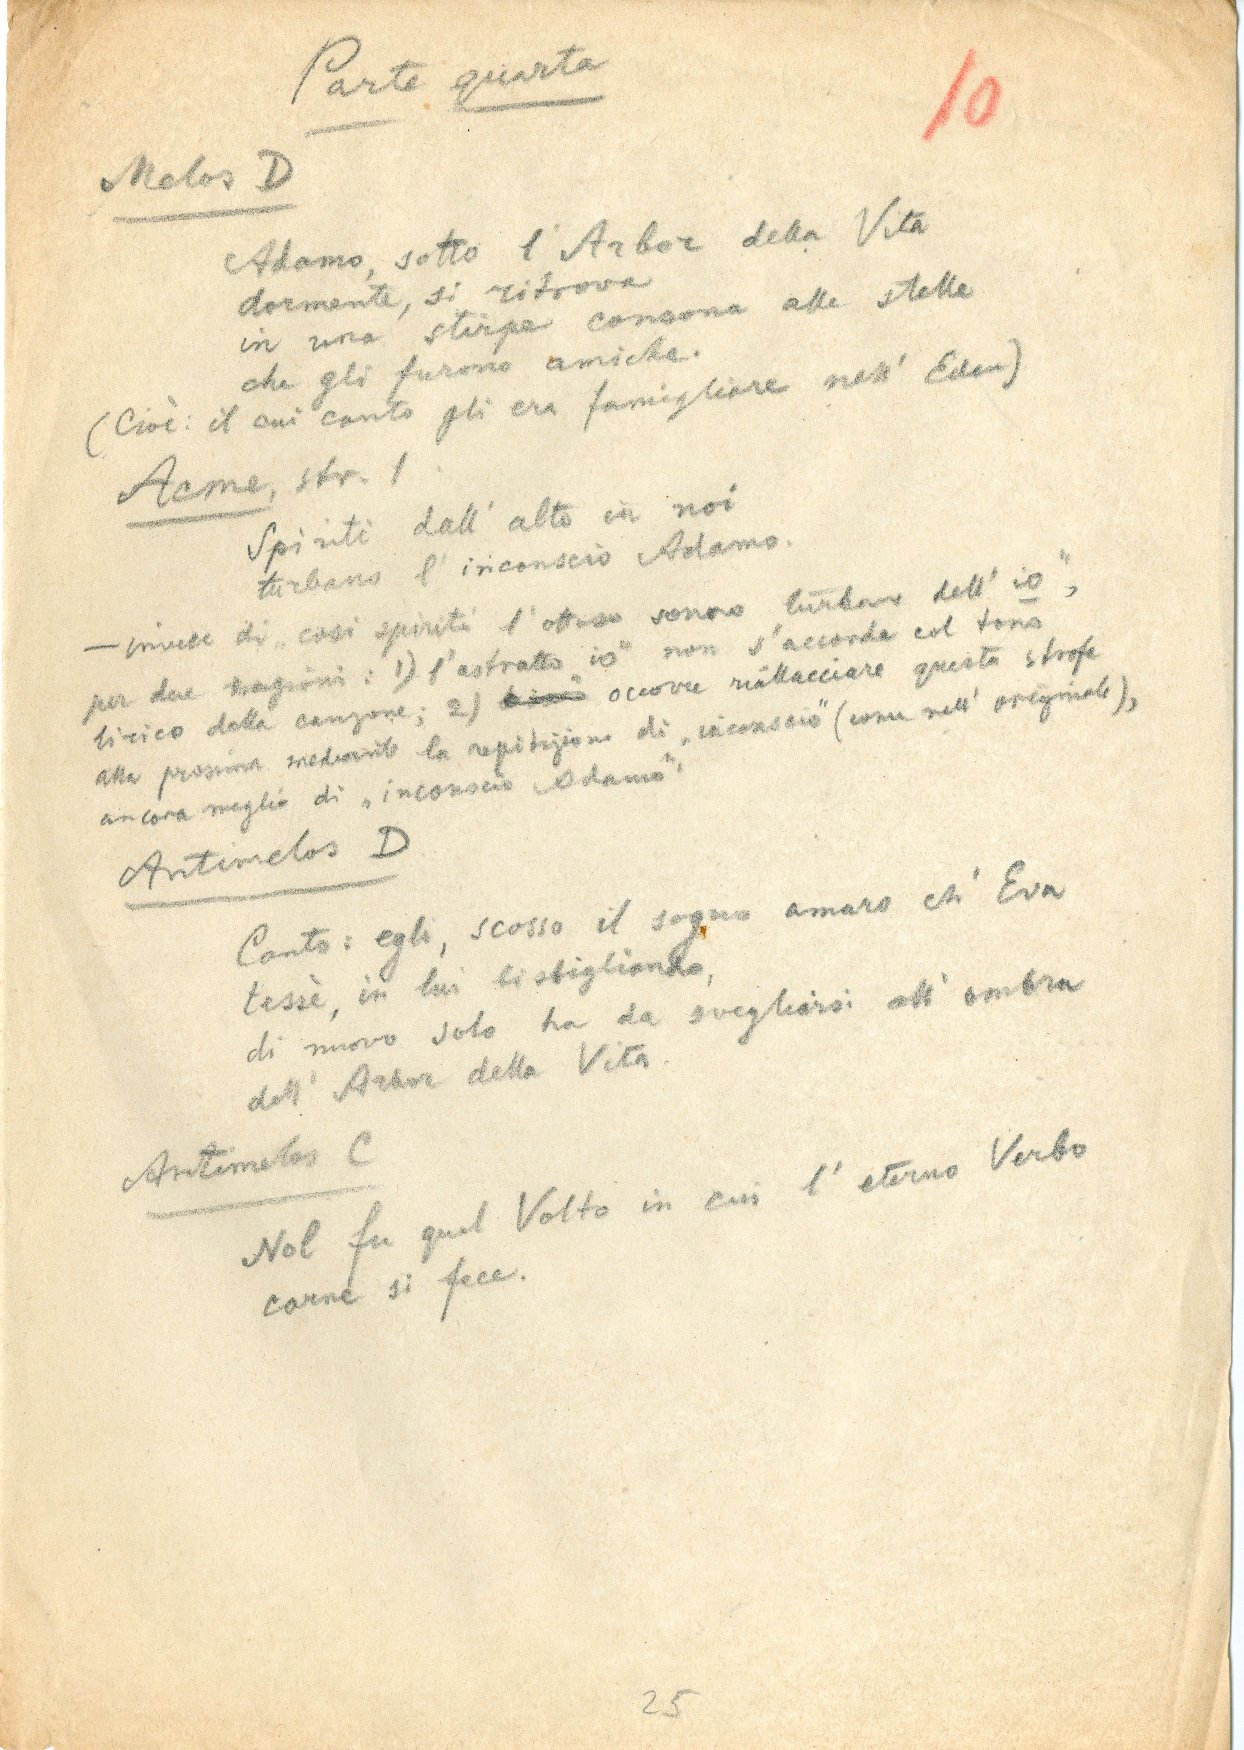 Parte quarta
10
Melos D
Adamo, sotto l'Arbor della Vita
dormente, si ritrova
in una stirpe consona alle stelle
che gli furono amiche.
(Cioè: il cui canto gli era famigliare nell' Eden)
Acme, str. 1
Spiriti dall' alto in noi
turbano l' inconscio Adamo.
— invece di „così spiriti l'ottuso sonno turban dell' io",
per due ragioni: 1) l'astratto „io" non s'accorda col tono
lirico della canzone; 2) occorre riallacciare questa strofe
alla prossima mediante la repitizione di „inconscio" (come nell' originale),
ancora meglio di „inconscio Adamo".
Antimelos D
Canto: egli, scosso il sogno amaro ch' Eva
tessè, in lui bisbigliando,
di nuovo solo ha da svegliarsi all' ombra
dell' Arbor della Vita.
Antimelos C
Nol fu quel Volto in cui l' eterno Verbo
carne si fece.
25